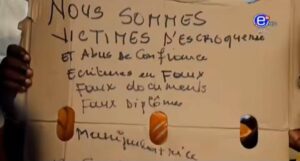 NOUS SOMMES
VICTIMES D'ESCROQUERIE
ET Abus de Confiance
Ecritures en Faux
Faux documents
Faux Diplôme
Manipulatrice